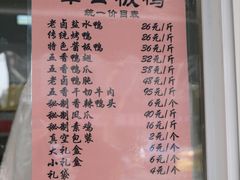 板鸭
统一价目表
老卤盐水鸭 26元/斤
传统烤鸭 26元/斤
特色酱板鸭 26元/斤
五香鸭翅 32元/斤
五香鸭爪 38元/斤
老卤鸭肫 48元/斤
五香干切牛肉 95元/斤
秘制香辣鸭头 6元/个
秘制凤爪 40元/斤
秘制素鸡 16元/斤
真空包装 2元/个
大礼盒 6元/个
小礼盒 6元/个
礼袋